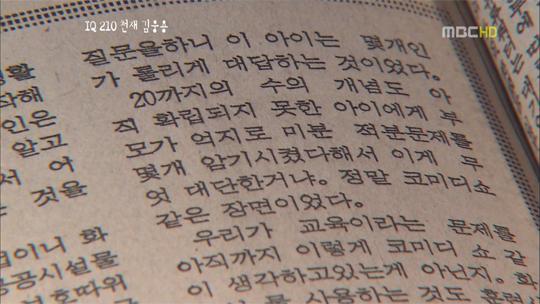 IQ 210 천재 김웅용
MBC HD
질문을하니 이 아이는 몇개인
가 틀리게 대답하는 것이었다.
20까지의 수의 개념도 아
직 확립되지 못한 아이에게 부
모가 억지로 미분 적분문제를
몇개 암기시켰다해서 이게 무
엇 대단한거냐。 정말 코미디쇼
같은 장면이었다.
우리가 교육이라는 문제를
아직까지 이렇게 코미디 쇼 같
이 생각하고있는게 아닌지. 화
사용하는 것도
인은
알고
서 어
것을
이니 화
공공시설물
호따위